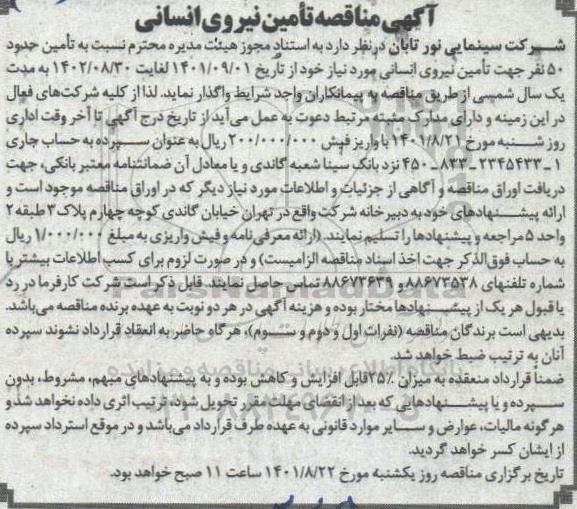 آگهی مناقصه تأمین نیروی انسانی
شرکت سینمایی نور تابان درنظر دارد به استناد مجوز هیئت مدیره محترم نسبت به تأمین حدود
۵۰ نفر جهت تأمین نیروی انسانی مورد نیاز خود از تاریخ ۱۴۰۱/۰۹/۰۱ لغایت ۱۴۰۲/۰۸/۳۰ به مدت
یک سال شمسی از طریق مناقصه به پیمانکاران واجد شرایط واگذار نماید. لذا از کلیه شرکت‌های فعال
در این زمینه و دارای مدارک مثبته مرتبط دعوت به عمل می‌آید از تاریخ درج آگهی تا آخر وقت اداری
روز شنبه مورخ ۱۴۰۱/۸/۲۱ با واریز فیش ۲۰۰/۰۰۰/۰۰۰ ریال به عنوان سپرده به حساب جاری
۱ـ۲۳۴۵۴۳۳ـ۸۳۳ـ۴۵۰ نزد بانک سینا شعبه گاندی و یا معادل آن ضمانتنامه معتبر بانکی، جهت
دریافت اوراق مناقصه و آگاهی از جزئیات و اطلاعات مورد نیاز دیگر که در اوراق مناقصه موجود است و
ارائه پیشنهادهای خود به دبیرخانه شرکت واقع در تهران خیابان گاندی کوچه چهارم پلاک ۳ طبقه ۲
واحد ۵ مراجعه و پیشنهادها را تسلیم نمایند. (ارائه معرفی‌نامه و فیش واریزی به مبلغ ۱/۰۰۰/۰۰۰ ریال
به حساب فوق‌الذکر جهت اخذ اسناد مناقصه الزامیست) و در صورت لزوم برای کسب اطلاعات بیشتر با
شماره تلفنهای ۸۸۶۷۳۵۳۸ و ۸۸۶۷۳۶۳۹ تماس حاصل نمایند. قابل ذکر است شرکت کارفرما در رد
یا قبول هر یک از پیشنهادها مختار بوده و هزینه آگهی در هر دو نوبت به عهده برنده مناقصه می‌باشد.
بدیهی است برندگان مناقصه (نفرات اول و دوم و سوم)، هرگاه حاضر به انعقاد قرارداد نشوند سپرده
آنان به ترتیب ضبط خواهد شد.
ضمناً قرارداد منعقده به میزان ۲۵٪ قابل افزایش و کاهش بوده و به پیشنهادهای مبهم، مشروط، بدون
سپرده و یا پیشنهادهایی که بعد از انقضای مهلت مقرر تحویل شود، ترتیب اثری داده نخواهد شد و
هرگونه مالیات، عوارض و سایر موارد قانونی به عهده طرف قرارداد می‌باشد و در موقع استرداد سپرده
از ایشان کسر خواهد گردید.
تاریخ برگزاری مناقصه روز یکشنبه مورخ ۱۴۰۱/۸/۲۲ ساعت ۱۱ صبح خواهد بود.